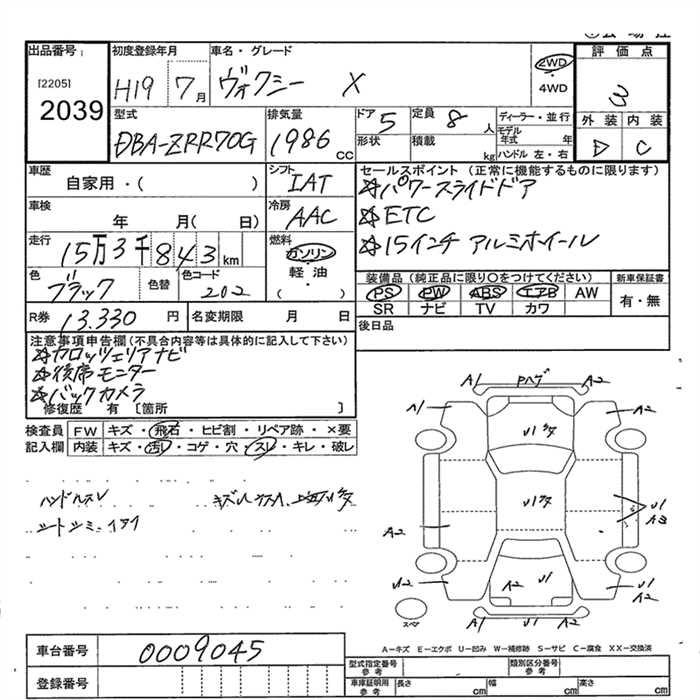 出品番号：
初度登録年月
車名・グレード
2WD
4WD
評価点
[2205]
2039
H19 7月
ヴォクシー X
3
型式
排気量
ドア 5
定員 8 人
ディーラー・並行
モデル年式 年
外装
内装
DBA-ZRR70G
1986 cc
形状
積載 kg
ハンドル 左・右
D
C
車歴
自家用・( )
シフト
IAT
セールスポイント (正常に機能するものに限ります)
☆パワースライドドア
車検
年 月( 日)
冷房
AAC
☆ETC
走行
15万3千843km
燃料
ガソリン
軽油
( )
☆15インチ アルミホイール
色
ブラック
色替
色コード
202
装備品 (純正品に限り○をつけてください)
新車保証書
PS PW ABS エアB AW
有・無
SR ナビ TV カワ
R券 13.330 円
名変期限 月 日
後日品
注意事項申告欄(不具合内容等は具体的に記入して下さい)
☆カロッツェリアナビ
☆後席モニター
☆バックカメラ
修復歴 有 [箇所 ]
検査員
記入欄
FW
キズ・飛石・ヒビ割・リペア跡・×要
内装
キズ・汚レ・コゲ・穴・スレ・キレ・破レ
ハンドルスレ
A1
Pハゲ
A2
A1
A2
U1
U1
U1
A3
A2
A2
A2
U1
U1
A2
スペア
A1
U1
A2
A－キズ E－エクボ U－凹み W－補修跡 S－サビ C－腐食 XX－交換済
車台番号
0009045
登録番号
型式指定番号
参考
類別区分番号
参考
車庫証明用
参考
長さ cm
幅 cm
高さ cm